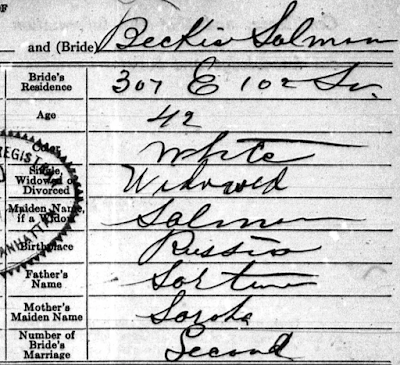 OF
and (Bride) Beckie Salman
Bride's Residence 307 E 102 St.
Age 42
Color White
Single, Widowed or Divorced Widowed
Maiden Name, if a Widow Salman
Birthplace Russia
Father's Name
Mother's Maiden Name
Number of Bride's Marriage Second
REGISTR
MANHATTAN